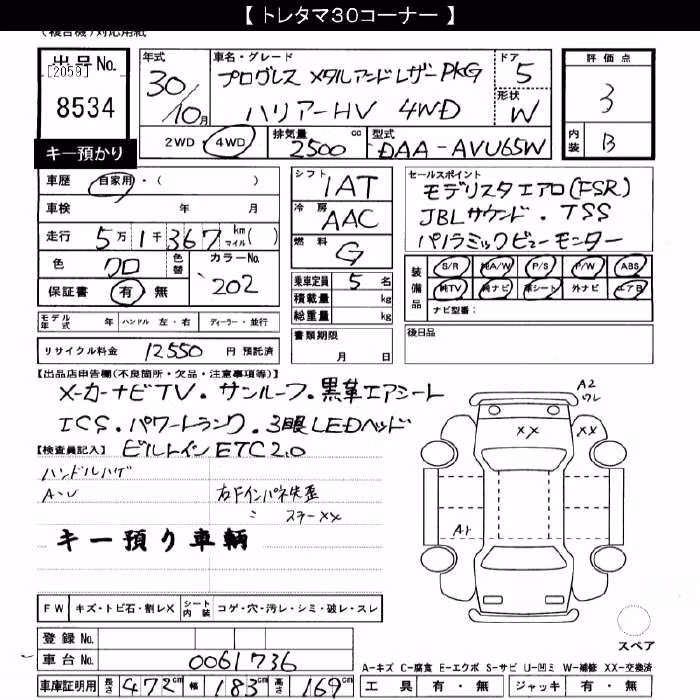 【トレタマ30コーナー】
(複合機)対応用紙
出品No. [2059] 8534
キー預かり
年式 30/10月
車名・グレード プログレス メタルアンドレザーPKG ハリアーHV 4WD
ドア 5
形状 W
2WD・4WD 排気量 2500 cc 型式 DAA-AVU65W
評価点 3
内装 B
車歴 自家用・( )
車検 年 月
走行 5万1千367 km マイル( )
色 クロ 色替 カラーNo. 202
保証書 有・無
モデル年式 年 ハンドル 左・右 ディーラー・並行
リサイクル料金 12550 円 預託済
シフト IAT
冷房 AAC
燃料 G
乗車定員 5 名
積載量 kg
総重量 kg
書類期限 月 日
セールスポイント
モデリスタエアロ(FSR)
JBLサウンド・TSS
パノラミックビューモニター
装備品 S/R 純A/W P/S P/W ABS
純TV 純ナビ 革シート 外ナビ エアB
ナビ型番:
後日品
【出品店申告欄(不良箇所・欠品・注意事項等)】
メーカーナビTV・サンルーフ・黒革エアシート
ICS・パワートランク・3眼LEDヘッド
【検査員記入】 ビルトインETC2.0
ハンドルハゲ
A・U 右Fインパネ先歪
ミ ステーXX
キー預り車輌
FW キズ・トビ石・割レX シート内装 コゲ・穴・汚レ・シミ・破レ・スレ
登録No.
車台No. 0061736
車庫証明用 長さ 472cm 幅 183cm 高さ 169cm
A2 ワレ
XX XX
A1
スペア
A-キズ C-腐食 E-エクボ S-サビ U-凹ミ W-補修 XX-交換済
工具 有・無 ジャッキ 有・無